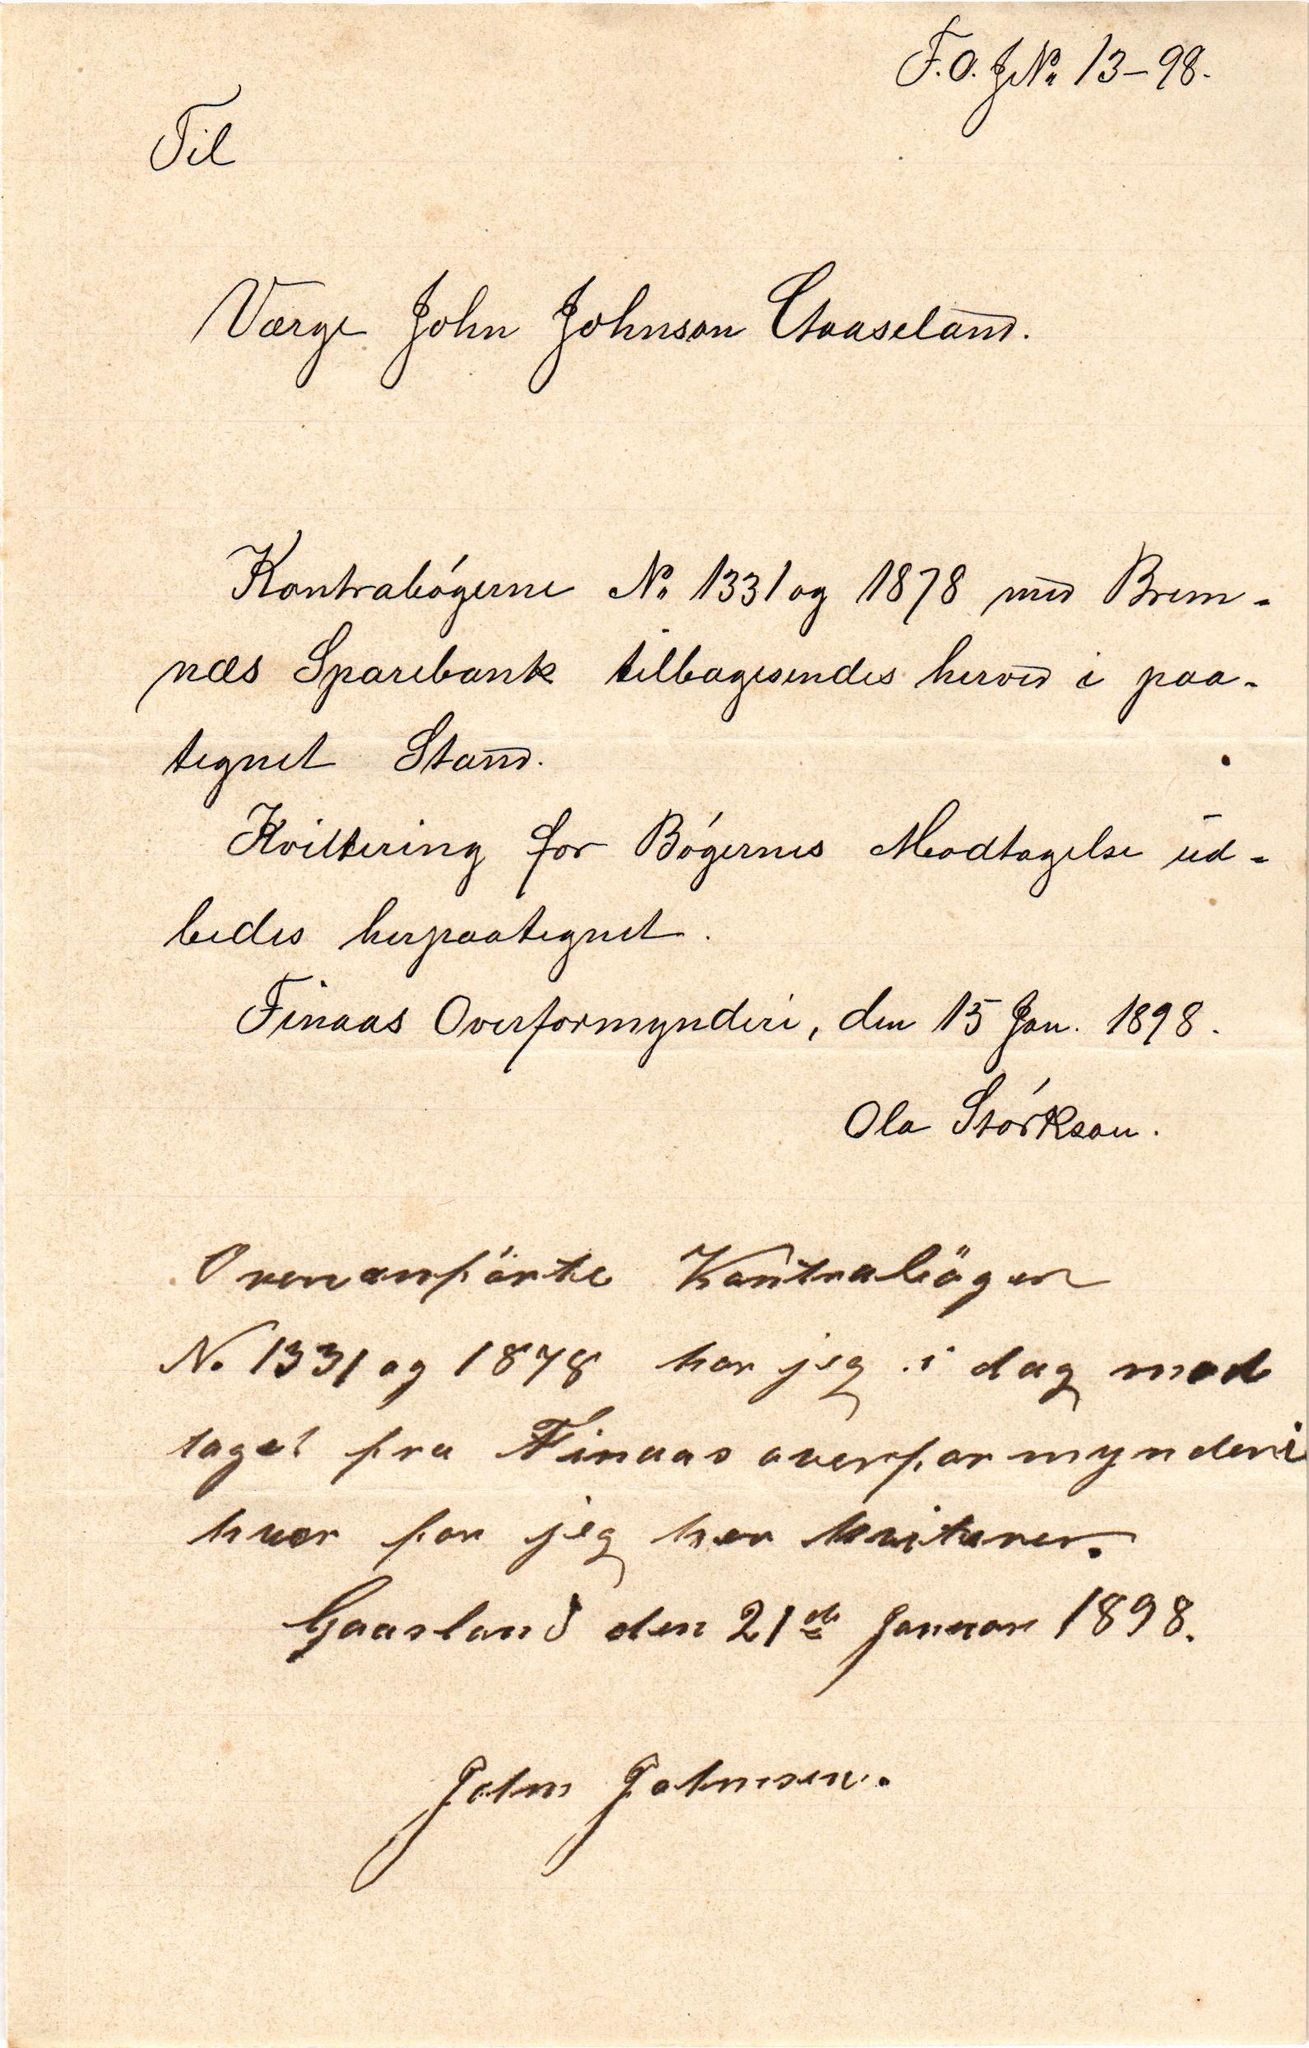 F.O. J.No 13-98.
Til
Værge John Johnson Gaaseland.
Kontrabógerne No 1331 og 1878 med Brem-
næs Sparebank tilbagesendes herved i paa-
tegnet Stand.
Kvittering for Bógernes Modtagelse ud-
bedes herpaategnet.
Finaas Overformynderi, den 15 Jan. 1898.
Ola Störkson.
Ovenanförte Kontraböger
No 1331 og 1878 har jeg i dag mod
taget fra Finaas overformynderi
hvor for jeg her kviterer.
Gaasland den 21de Januar 1898.
John Johnsen.